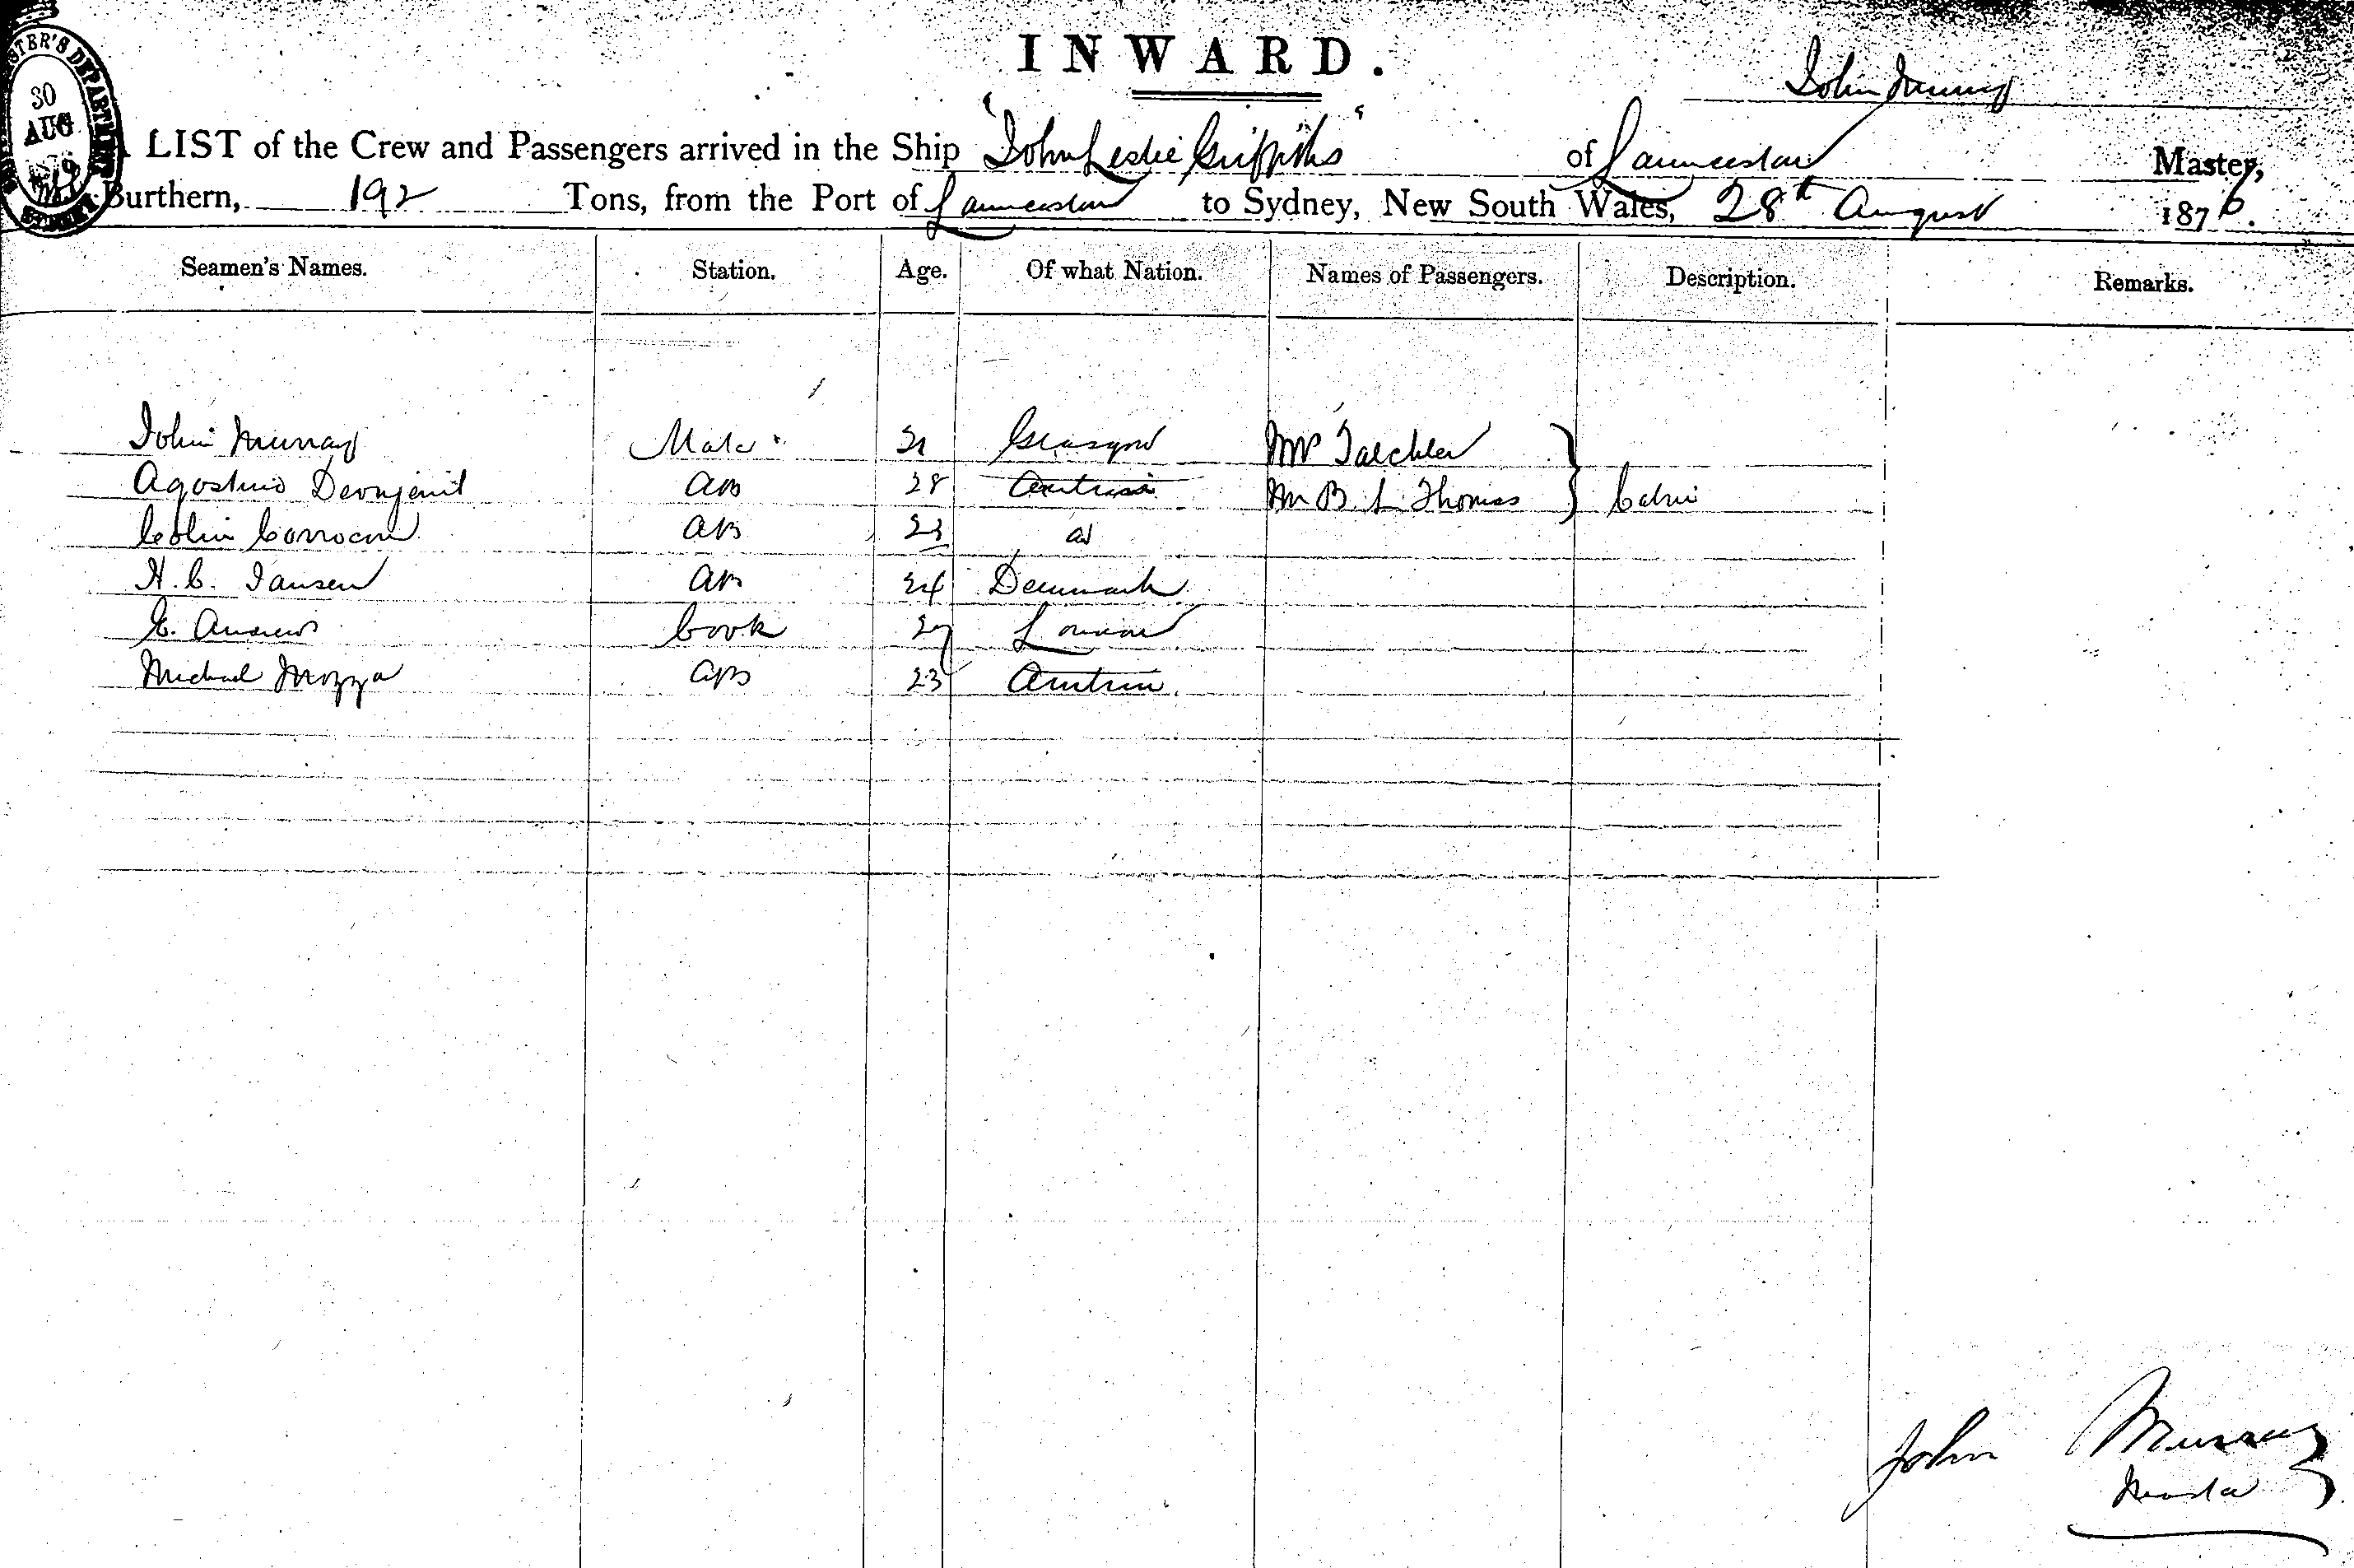 INWARD.
John Murray
30
AUG
A LIST of the Crew and Passengers arrived in the Ship "John Leslie Griffiths" of Launceston Master,
Burthern, 192 Tons, from the Port of Launceston to Sydney, New South Wales, 28th August 1876.
Seamen's Names. Station. Age. Of what Nation. Names of Passengers. Description. Remarks.
John Murray Mate Glasgow Mr
Agostino AB 28 Austria Mr B. L Thomas } Cabin
Colin AB 23
H. C. Jansen AB 24 Denmark
E. Andrews Cook 27 London
Michael Mozza AB 23 Austria
John Murray
Master